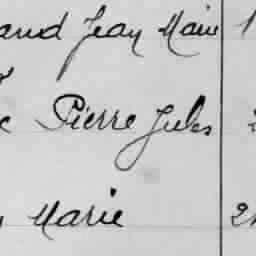 aud Jean Marie 1
c Pierre Jules 2
Marie 21